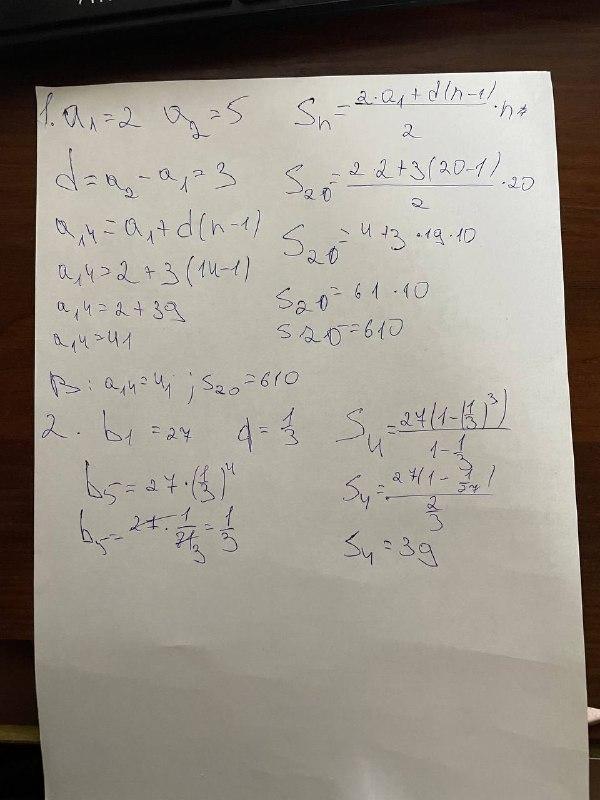 1. a₁=2 a₂=5
d=a₂-a₁=3
a₁₄=a₁+d(n-1)
a₁₄=2+3(14-1)
a₁₄=2+39
a₁₄=41
Sₙ=(2·a₁+d(n-1))/2·n
S₂₀=(2·2+3(20-1))/2·20
S₂₀=4+3·19·10
S₂₀=61·10
S₂₀=610
В: a₁₄=41; S₂₀=610
2. b₁=27 q=1/3
b₅=27·(1/3)⁴
b₅=27·1/81=1/3
S₄=27(1-(1/3)³)/(1-1/3)
S₄=27(1-1/27)/(2/3)
S₄=39